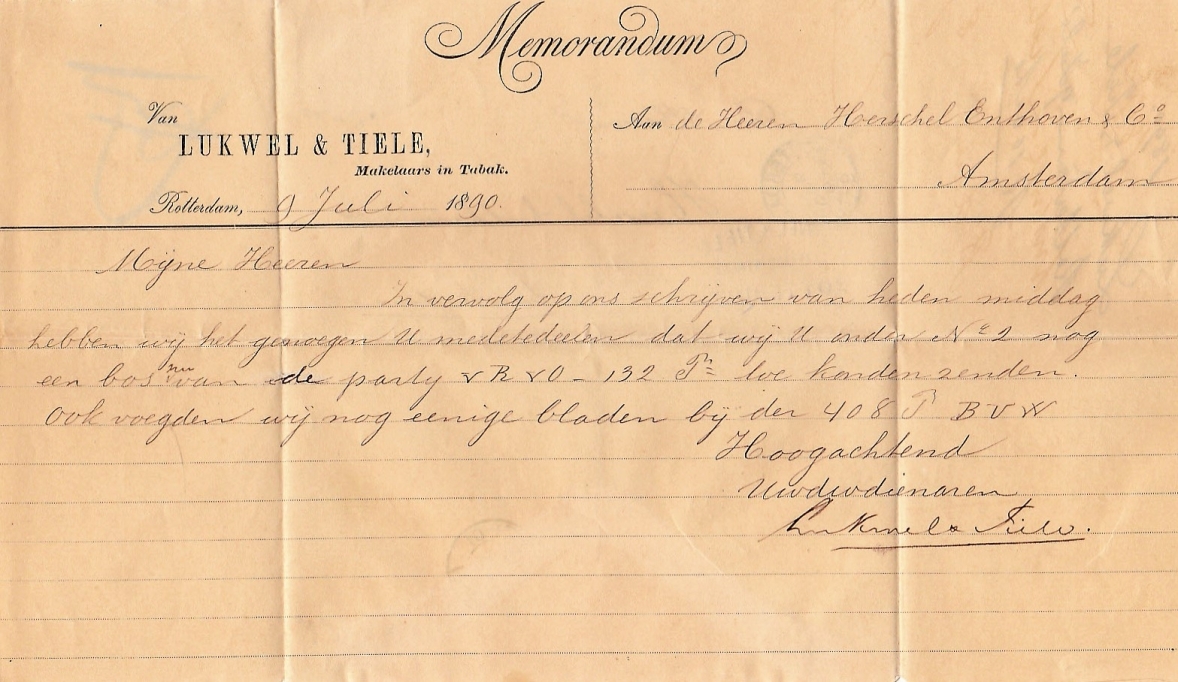 Memorandum
Van
LUKWEL & TIELE,
Makelaars in Tabak.
Rotterdam, 9 Juli 1890.
Aan de Heeren Herschel Enthoven & Co
Amsterdam
Mijne Heeren
In vervolg op ons schrijven van heden middag
hebben wij het genoegen U medetedeelen dat wij U onder No 2 nog
een bos van de party v R v O - 132 konden zenden.
Ook voegden wij nog eenige bladen bij der 408 P B V W
Hoogachtend
Uwdwdienaren
Lukwel & Tiele.